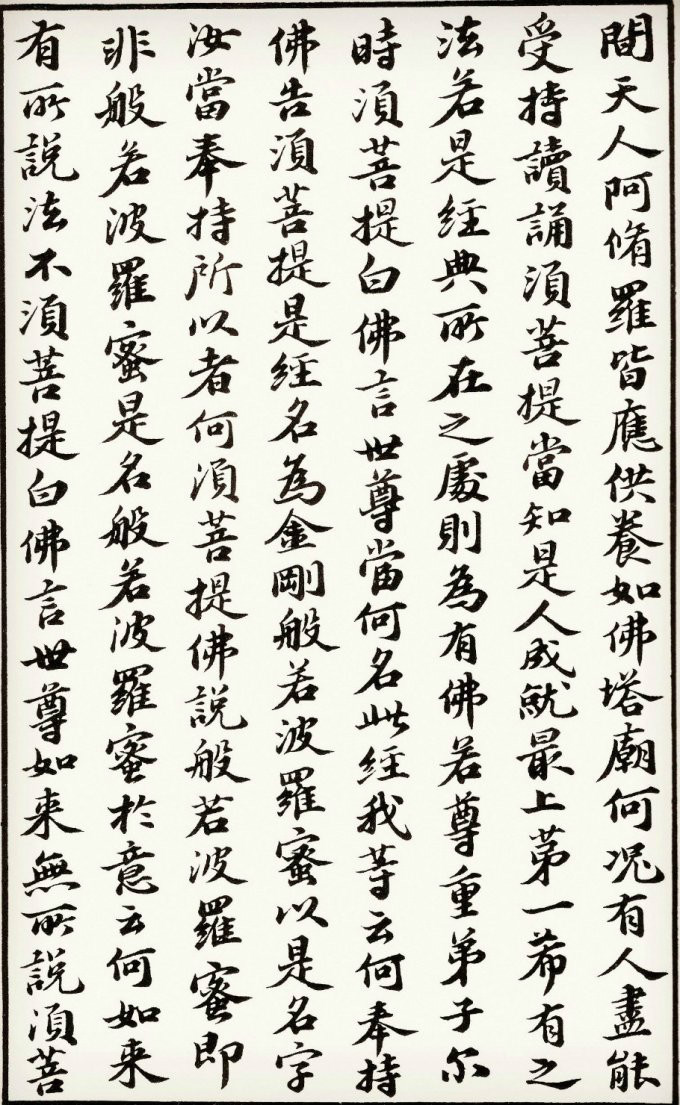 間天人阿脩羅皆應供養如佛塔廟何况有人盡能
受持讀誦須菩提當知是人成就最上第一希有之
法若是經典所在之處則為有佛若尊重弟子尔
時須菩提白佛言世尊當何名此經我等云何奉持
佛告須菩提是經名為金剛般若波羅蜜以是名字
汝當奉持所以者何須菩提佛說般若波羅蜜即
非般若波羅蜜是名般若波羅蜜於意云何如来
有所說法不須菩提白佛言世尊如来無所說須菩